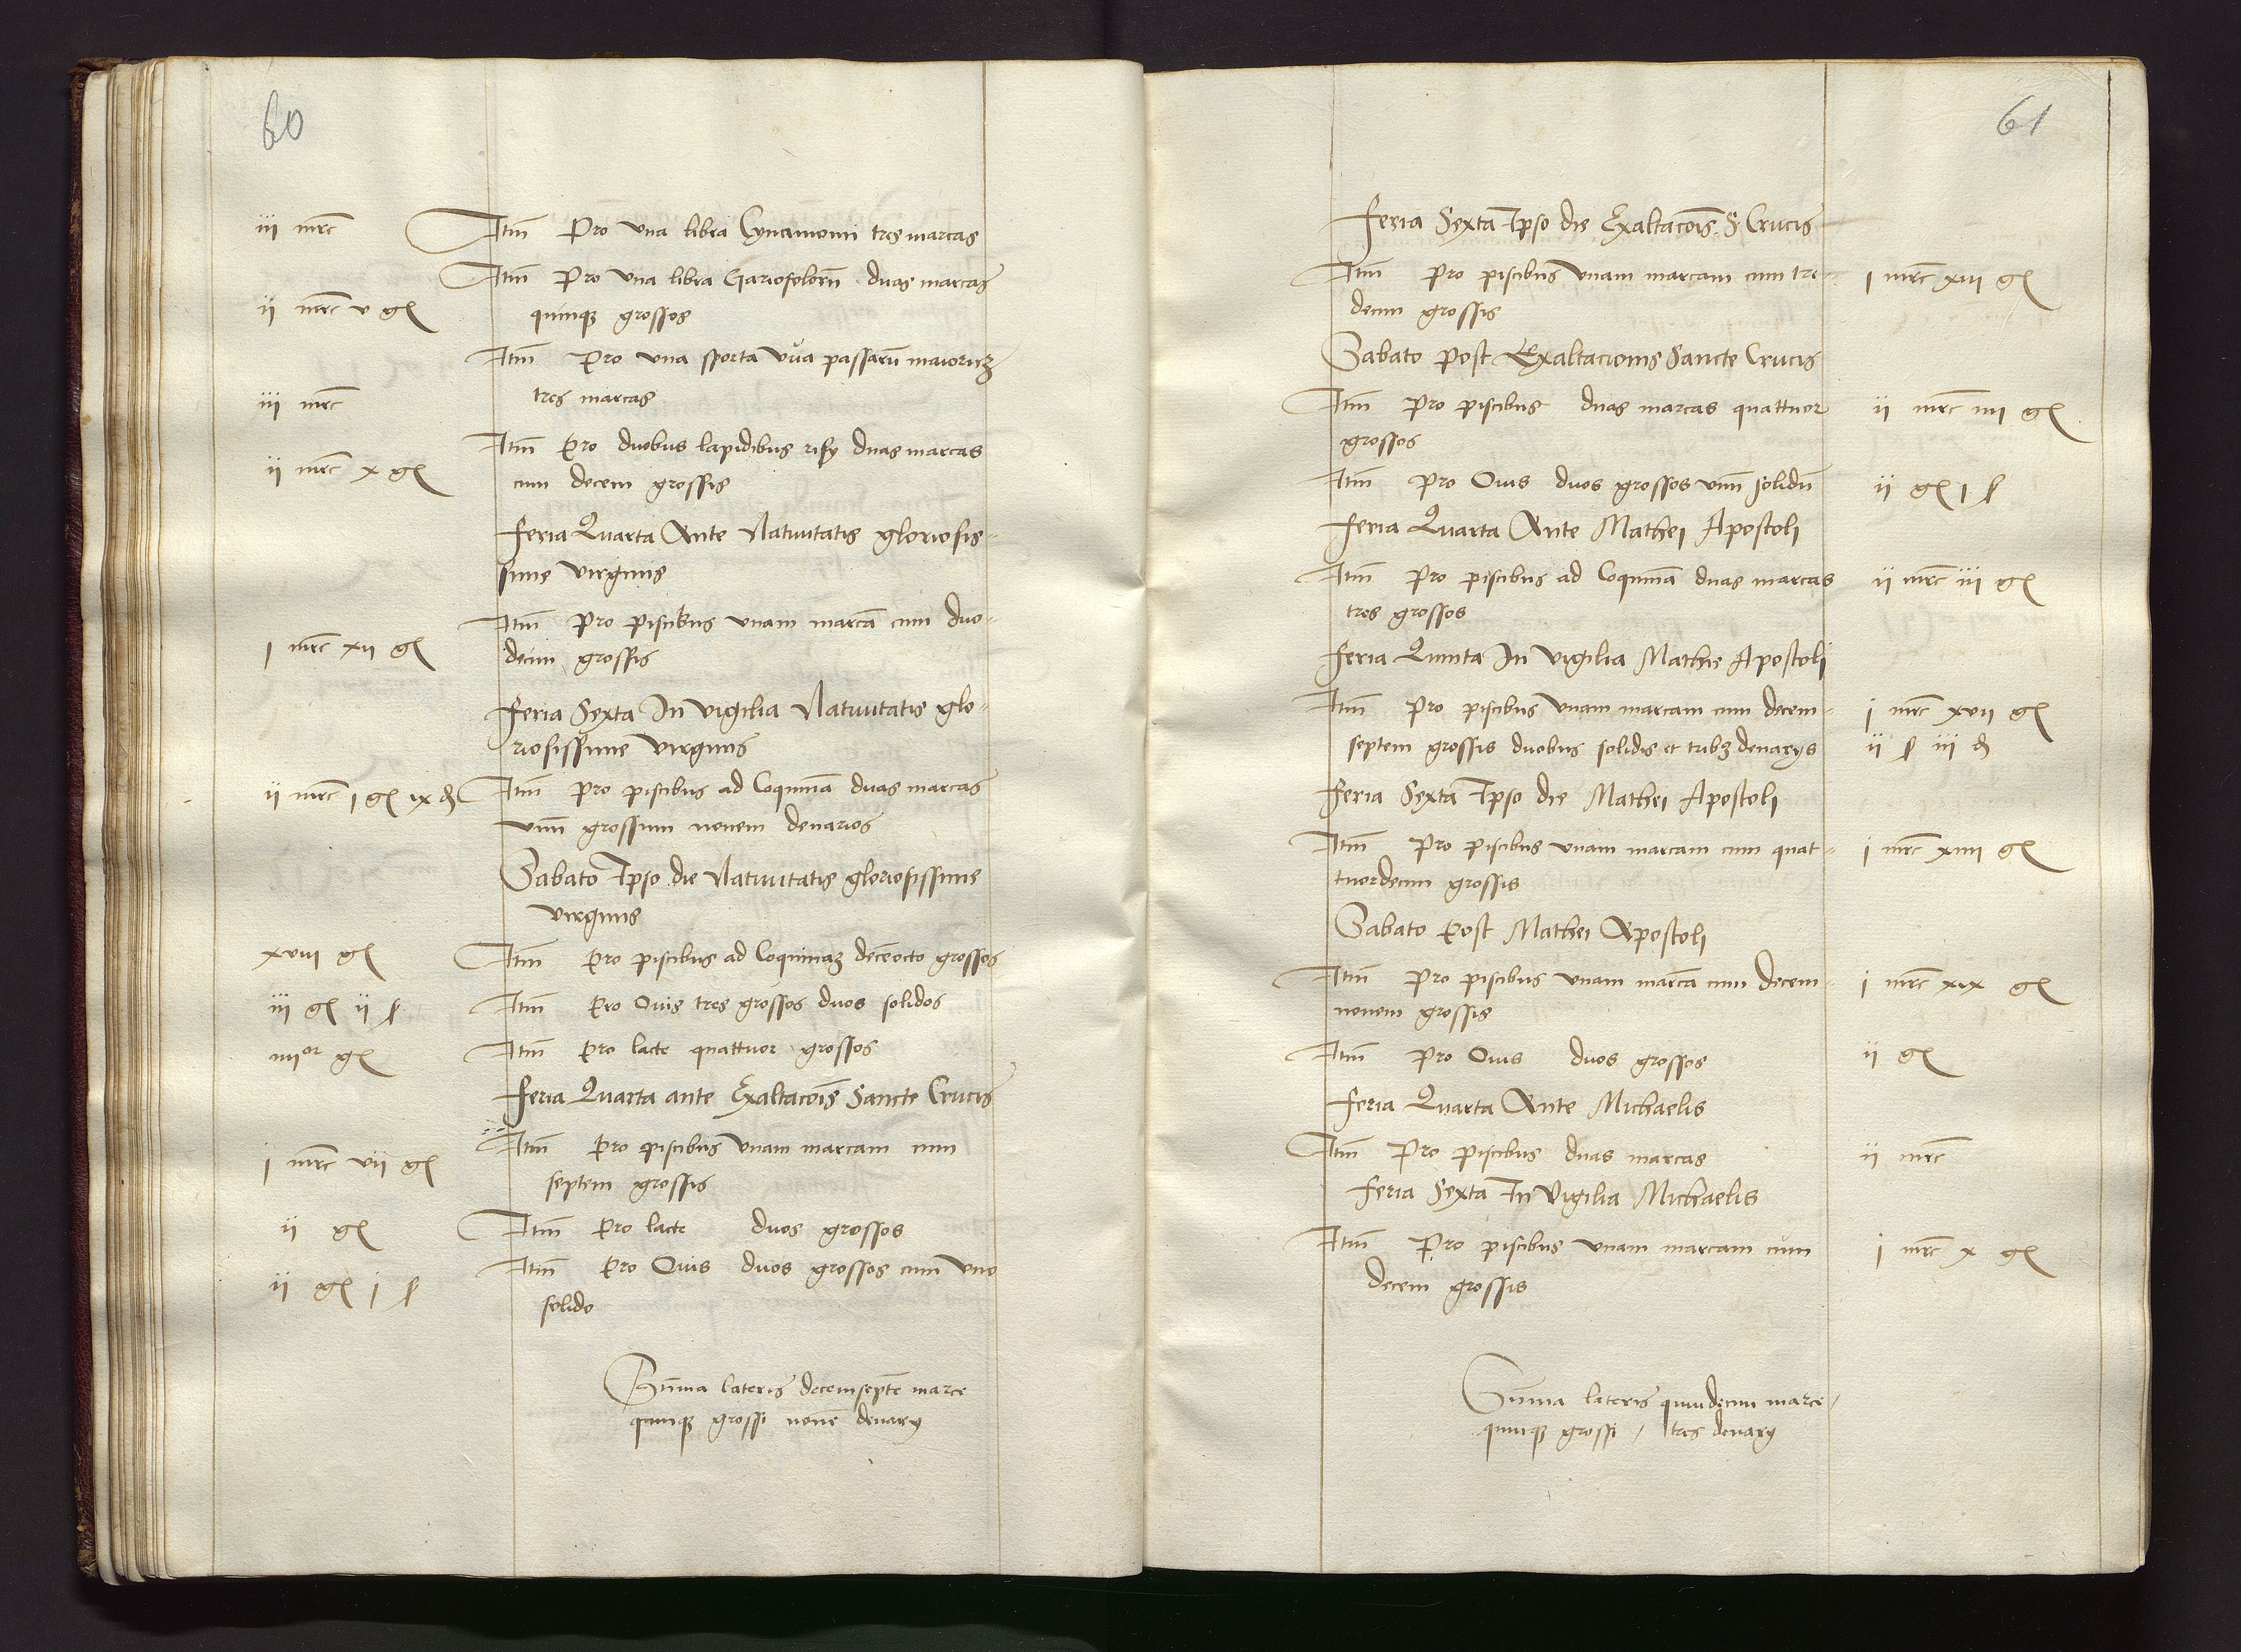 60
iii mrc Itm Pro una libra Cynamomi tres marcas
Itm Pro una libra Gariofolorū duas marcas
ii mrc v gͬ quinqꝫ grossos
Itm Pro una sporta uva passarū maioricꝫ
iii mrc tres marcas
Itm Pro duobus lapidibus risy duas marcas
ii mrc x gͬ cum decem grossis
Feria Quarta Ante Nativitatis gloriosis-
sime virginis
Itm Pro piscibus unam marcā cum duo-
i mrc xii gͬ decim grossis
Feria Sexta In vigilia Nativitatis glo-
riosissime virginis
ii mrc i gͬ ix ₰ Itm pro piscibus ad Coquinā duas marcas
unū grossum novem denarios
Sabato Ipso die Nativitatis gloriosissime
virginis
xviii gͬ Itm Pro piscibus ad Coquinaꝫ decēocto grossos
iii gͬ ii ſ Itm Pro Ovis tres grossos duos solidos
iiii or gͬ Itm Pro lacte quattuor grossos
Feria Quarta ante Exaltacōis Sancte Crucis
i mrc vii gͬ Itm Pro piscibus unam marcam cum
septem grossis
ii gͬ Itm Pro lacte duos grossos
ii gͬ i ſ Itm Pro Ovis duos grossos cum uno
solido
Sūma lateris decemseptē marce
quinqꝫ grossi novē denarij
61
Feria Sexta Ipso die Exaltacōis S. Crucis
Itm pro piscibus unam marcam cum tre- i mrc xiii gͬ
decim grossis
Sabato post Exaltacionis Sancte Crucis
Itm Pro piscibus duas marcas quattuor ii mrc iiii gͬ
grossos
Itm Pro Ovis duos grossos unū solidū ii gͬ i ſ
Feria Quarta Ante Mathei Apostoli
Itm Pro piscibus ad Coquinā duas marcas ii mrc iii gͬ
tres grossos
Feria Quinta In vigilia Mathei Apostoli
Itm Pro piscibus unam marcam cum decem- i mrc xvii gͬ
septem grossis duobus solidis et tribꝫ denarijs ii ſ iii ₰
Feria Sexta Ipso die Mathei Apostoli
Itm Pro piscibus unam marcam cum quat- i mrc xiiii gͬ
tuordecim grossis
Sabato Post Mathei Apostoli
Itm Pro piscibus unam marcā cum decem- i mrc xix gͬ
novem grossis
Itm Pro Ovis duos grossos ii gͬ
Feria Quarta Ante Michaelis
Itm Pro piscibus duas marcas ii mrc
Feria Sexta In Vigilia Michaelis
Itm Pro piscibus unam marcam cum i mrc x gͬ
decem grossis
Sūma lateris quindecim marce /
quinqꝫ grossi / tres denarij